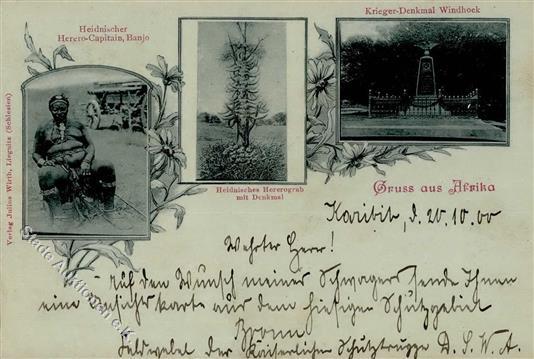 Heidnischer
Herero-Capitain, Banjo
Krieger-Denkmal Windhoek
Heidnisches Hererograb
mit Denkmal
Gruss aus Afrika
Verlag Julius Wirth, Liegnitz (Schlesien)
Karibib, d. 20.10.00
Wehrter Herr!
Auf den Wunsch meines Schwagers sende Ihnen
eine Ansichtskarte aus dem hiesigen Schutzgebiet
Bronn
Feldwebel der Kaiserlichen Schutztruppe D. S. W. A.
Stade Auktionen